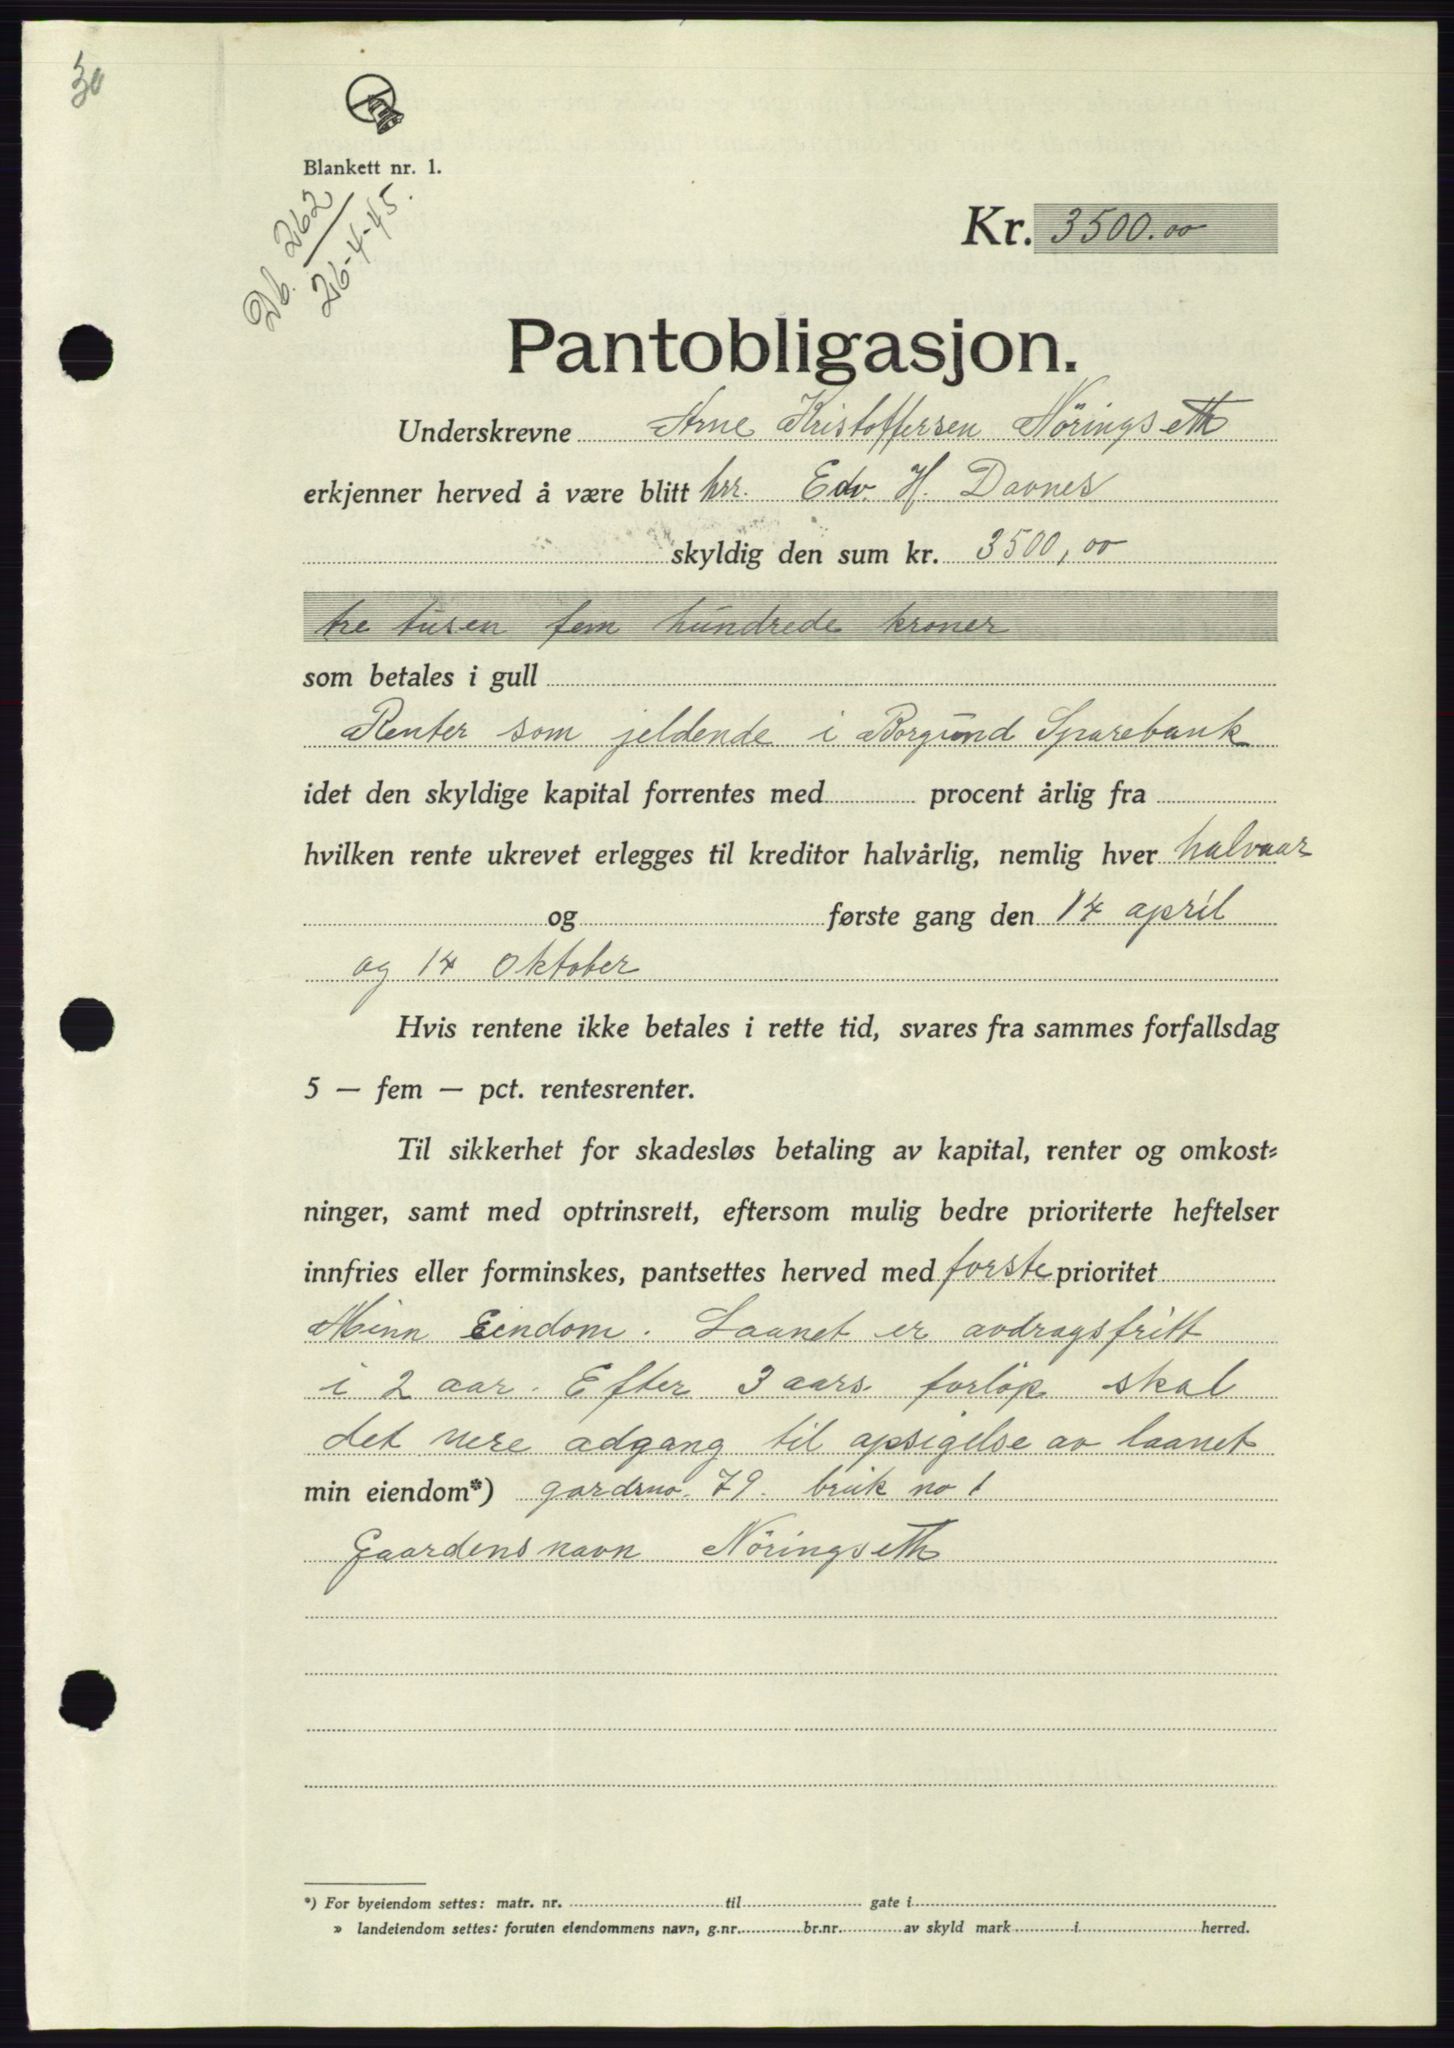 30
Blankett nr. 1.
Db. 262
26-4-45.
Kr. 3500.00
Pantobligasjon.
Underskrevne Arne Kristoffersen Nöringseth
erkjenner herved å være blitt hrr. Edv. H. Davnes
skyldig den sum kr. 3500,00
tre tusen fem hundrede kroner
som betales i gull
Renter som jeldende i Borgund Sparebank
idet den skyldige kapital forrentes med procent årlig fra
hvilken rente ukrevet erlegges til kreditor halvårlig, nemlig hver halvaar
og første gang den 14 april
og 14 Oktober
Hvis rentene ikke betales i rette tid, svares fra sammes forfallsdag
5 — fem — pct. rentesrenter.
Til sikkerhet for skadesløs betaling av kapital, renter og omkost-
ninger, samt med optrinsrett, eftersom mulig bedre prioriterte heftelser
innfries eller forminskes, pantsettes herved med forste prioritet
Minn Eindom. Laanet er avdragsfritt
i 2 aar. Efter 3 aars forlöp skal
det vere adgang til opsigelse av laanet
min eiendom*) gardsno. 79. bruk no 1
Gaardens navn Nöringseth
*) For byeiendom settes: matr. nr. til gate i
» landeiendom settes: foruten eiendommens navn, g.nr. br.nr. av skyld mark i herred.